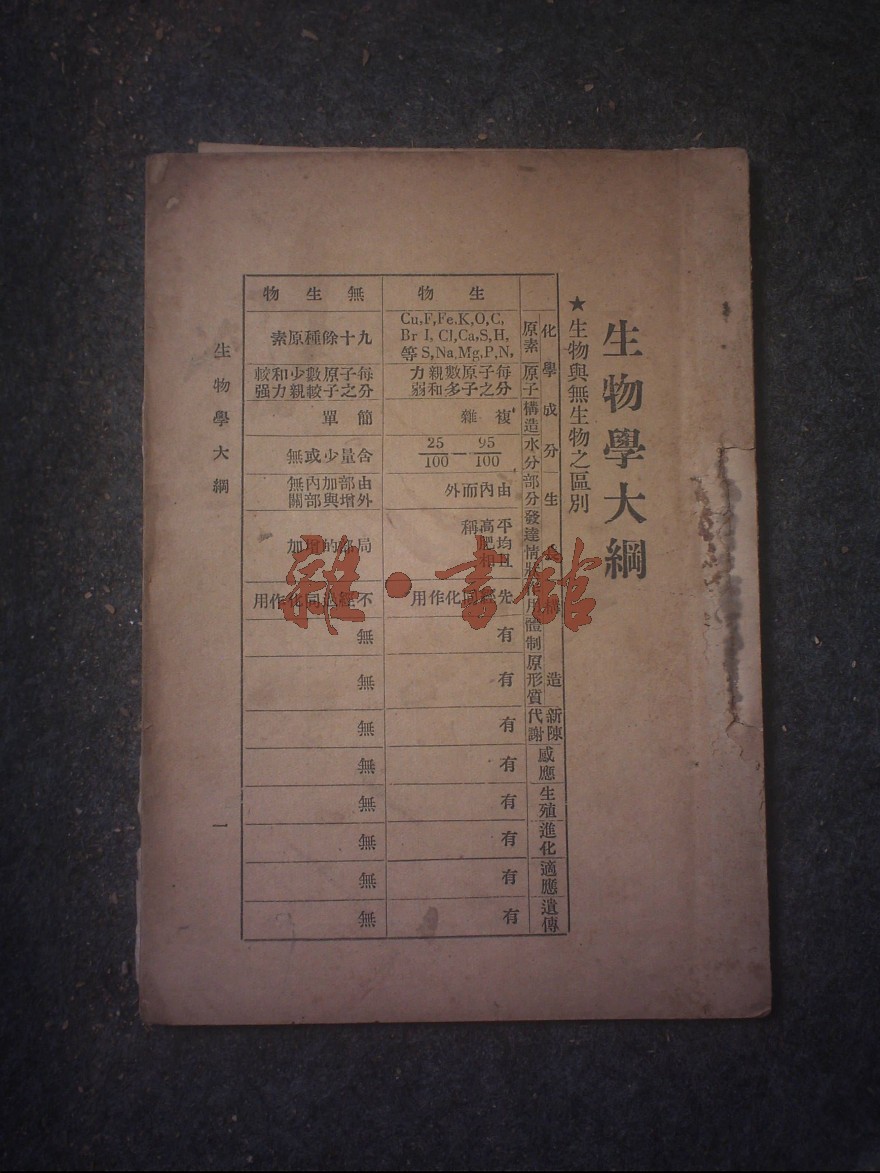 生物學大綱
★生物與無生物之區別
化學成分
原素
原子
構造
水分
生長
部分
發達情狀
作用
構造
體制
原形質
新陳代謝
感應
生殖
進化
適應
遺傳
生物
Cu,F,Fe,K,O,C,
Br I, Cl,Ca,S,H,
等 S,Na,Mg,P,N,
每分子之原子數多親和力弱
複雜
95/100—25/100
由內而外
平均且高肥相稱
先經同化作用
有
有
有
有
有
有
有
有
無生物
九十餘種原素
每分子之原子數較少親和力較强
簡單
含量少或無
由外部增加與內部無關
局部的增加
不經過同化作用
無
無
無
無
無
無
無
無
生物學大綱
一
雜·書館